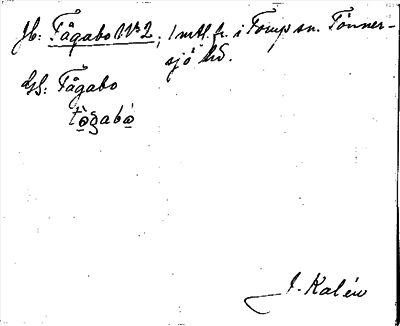 Jb: Fågabo № 2; 1 mtl. fr. i Tomp sn. Tönner-
sjö hd.
Gg: Fågabo
tògabò
J. Kalén